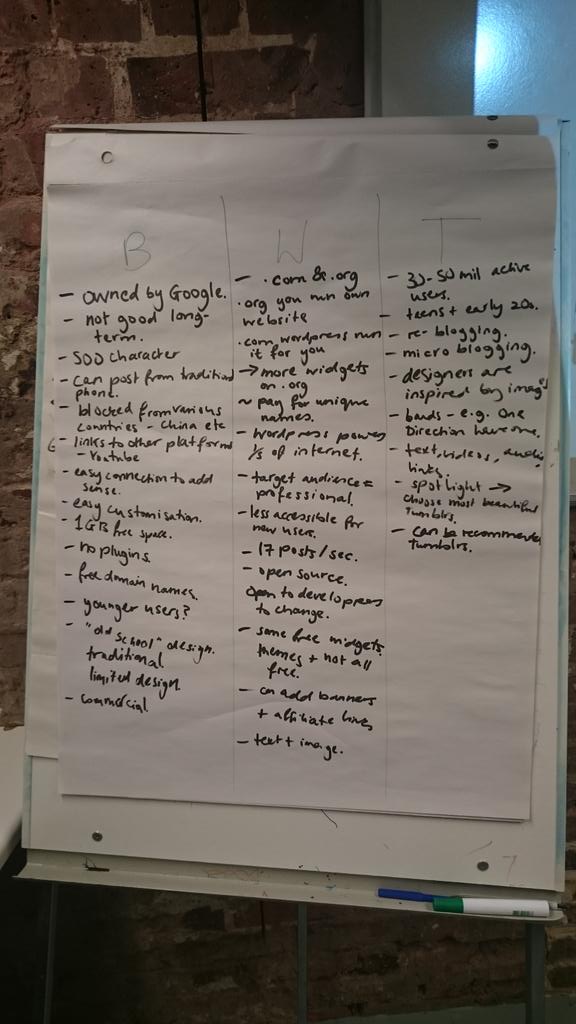 B
- owned by Google.
- not good long-
term.
- 500 character
- can post from traditional
phone.
- blocked from various
countries - China etc
- links to other platforms
- Youtube
- easy connection to add
sense.
- easy customisation.
- 1GB free space.
- no plugins.
- free domain names.
- younger users?
- "old school" design.
traditional
limited design.
- commercial.
W
- .com & .org
.org you run own
website
.com wordpress run
it for you
→ more widgets
on .org
~ pay for unique
names.
- Wordpress powers
1/5 of internet.
- target audience =
professional.
- less accessible for
new users.
- 17 posts/sec.
- open source.
open to developers
to change.
- some free widgets
themes + not all
free.
- can add banners
+ affiliate links
- text + image.
T
- 30-50 mil active
users.
- teens + early 20s.
- re-blogging.
- micro blogging.
- designers are
inspired by images
- bands - e.g. One
Direction have one.
- text, videos, audio,
links.
- spotlight →
choose most beautiful
Tumblrs.
- can be recommended
tumblrs.